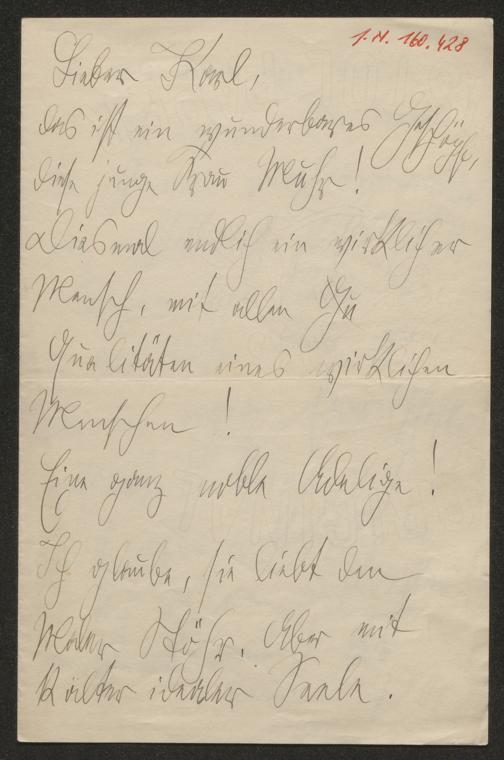 I.N. 160.428
Lieber Karl,
das ist ein wunderbares Geschöpf,
diese junge Frau Muhr!
Diesmal endlich ein wirklicher
Mensch, mit allen Qu
Qualitäten eines wirklichen
Menschen!
Eine ganz noble Adelige!
Ich glaube, sie liebt den
Maler Stöhr. Aber mit
kalter idealer Seele.